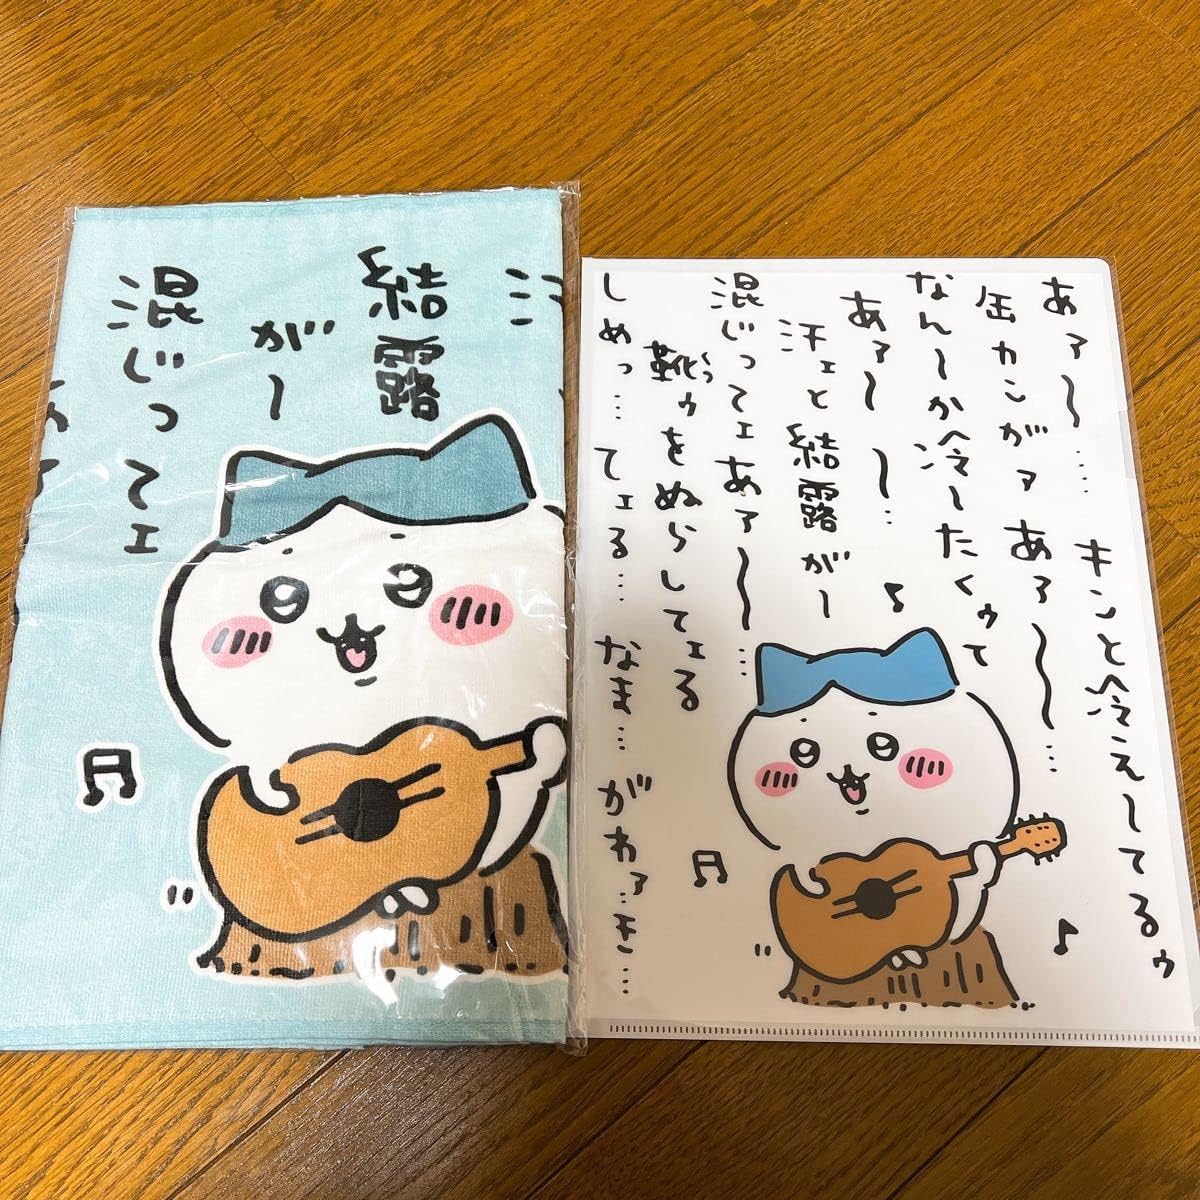 結露
が〜
混じってェ
あァ〜……
缶カンがァ
あァ〜〜…
キンと冷えーてるゥ
なん〜か冷ーたくゥて
あァ〜〜…
汗ェと結露が〜
混じってェあァ〜…
靴ゥをぬらしてェる
くつ
しめっ…てェる…なま…がわァき…